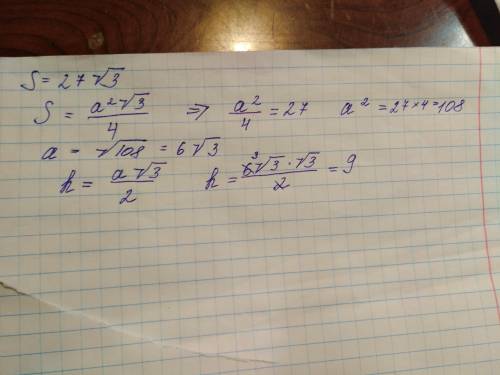 S = 27√3
S = a²√3/4 ⇒ a²/4 = 27 a² = 27×4=108
a = √108 = 6√3
h = a√3/2 h = 6³√3·√3/2 = 9